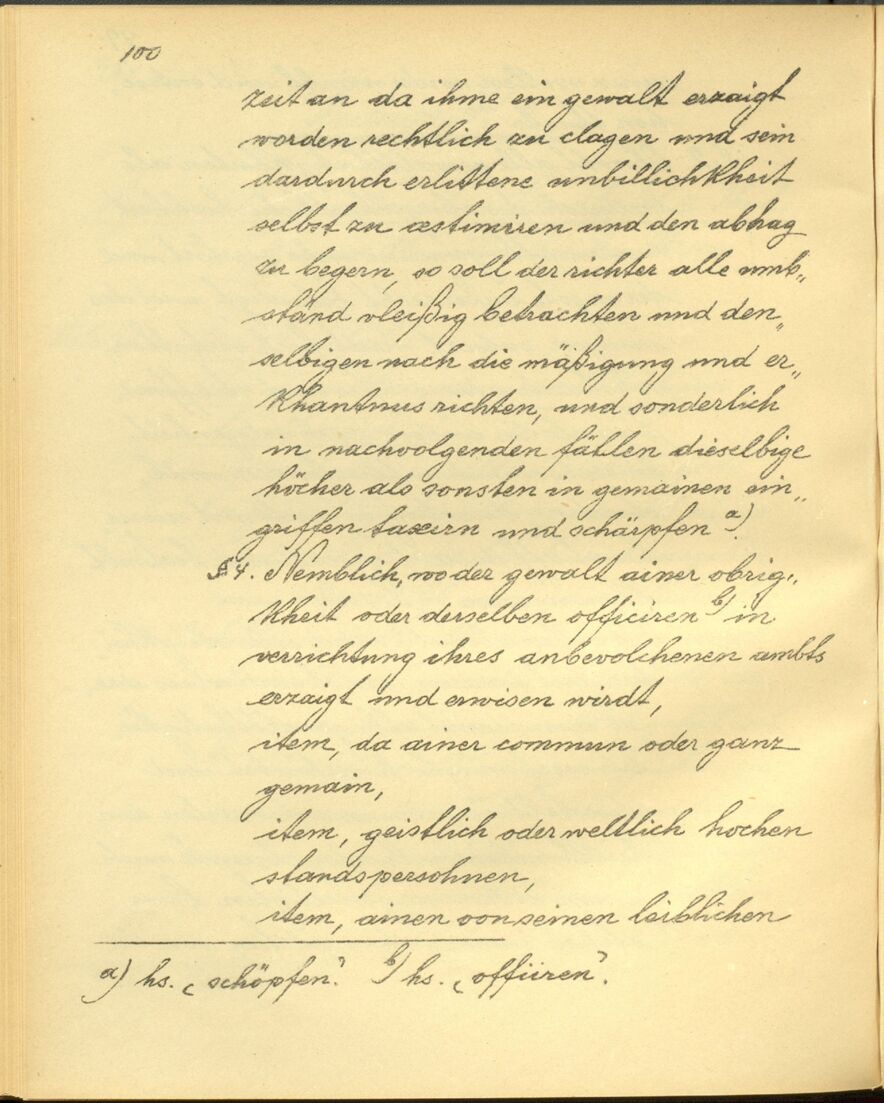 100
zeit an da ihme ein gewalt erzaigt
worden rechtlich zu clagen und sein
dardurch erlittene unbillichkheit
selbst zu æstimiren und den abtrag
zu begern, so soll der richter alle umb„
ständ vleißig betrachten und den„
selbigen nach die mäßigung und er„
khantnus richten, und sonderlich
in nachvolgenden fällen dieselbige
höcher als sonsten in gemainen ein„
griffen taxirn und schärpfen a).
§ 4. Nemblich, wo der gewalt ainer obrig„
kheit oder derselben officiren b) in
verrichtung ihres anbevolchenen ambts
erzaigt und erwisen wirdt,
item, da ainer commun oder ganz
gemain,
item, geistlich oder weltlich hochen
standspersohnen,
item, ainen von seinen leiblichen
a) hs. „schöpfen". b) hs. „offiiren".